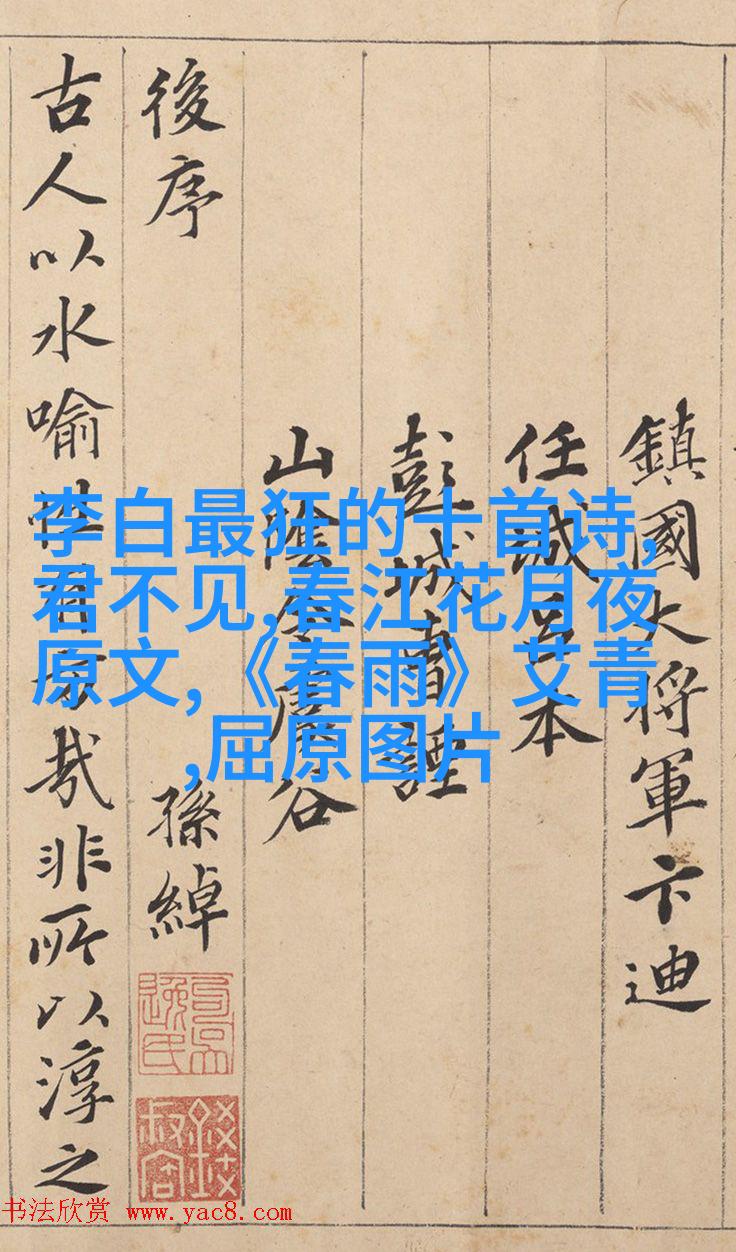 李白最狂的十首诗,
君不见,春江花月夜
原文,《春雨》艾青
,屈原图片
鎮國大將軍卞迪
任城呂本
彭城曹諲
山陰令虞谷
後序 孫綽
古人以水喻性有旨哉非所以淳之
书法欣赏 www.yac8.com